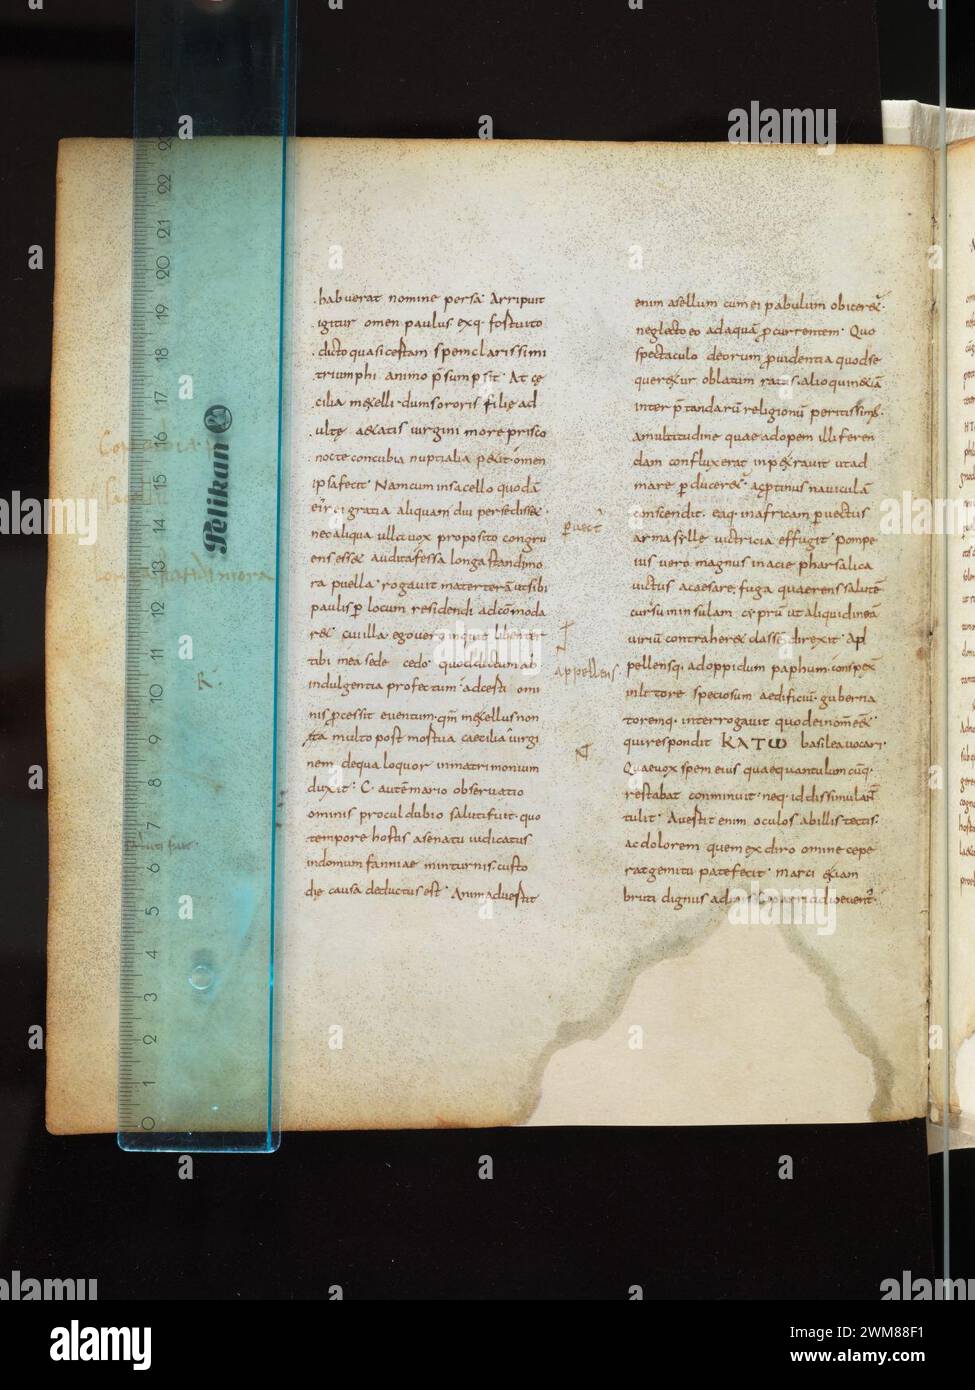 habuerat nomine persa. Arripuit
igitur omen paulus exq. fortuito
dicto quasi certam spem clarissimi
triumphi animo p̄sumpsit. At cę
cilia m&elli dum sororis filię ad
ultę aetatis virgini more prisco
nocte concubia nuptialia p&it omen
ipsa fecit. Nam cum insacello quodā
eius rei gratia aliquam diu persediss&
nec aliqua ulla vox proposito congru
ens ess& audita fessa longa standi mo
ra puella. rogavit materterā ut sibi
paulis p locum residendi adcōmoda
r&. cui illa ego vero inquit libenter
tibi mea sede cedo. quod dictum ab
indulgentia profectum adcerti omi
nis pcessit eventum. qm̄ m&ellus non
ita multo post mortua caecilia virgi
nem de qua loquor inmatrimonium
duxit. C. autē mario observatio
ominis procul dubio saluti fuit. quo
tempore hostis a senatu iudicatus
indomum fanniae minturnis. custo
dię causa deductus est. Animadvertit
enim asellum cum ei pabulum obicer&ur
neglecto eo ad aquā pcurrentem. Quo
spectaculo deorum pvidentia quod se
quer&ur oblatum ratus. alioquin &iā
inter p̄tandarū religionū peritissim'.
amultitudine quae adopem illi feren
dam confluxerat inp&ravit ut ad
mare pducer&ur. acptinus naviculā
conscendit. eaq. in africam pvectus
arma syllę victricia effugit. Pompe
ius vero magnus in acie pharsalica
victus a caesare. fuga quaerens salutē
cursum in sulam cyprū ut aliquid in eā
viriū contraher& classē direxit. Ap
pellensq. ad oppidum paphum. conspex
in littore speciosum aedificiū. guberna
toremq. interrogavit quod ei nomēess&
qui respondit ΚΑΤΩ basilea vocari.
Quae vox spem eius quae quantulumcūq.
restabat conminuit. neq. id dissimulanter
tulit. Avertit enim oculos ab illis tectis.
ac dolorem quem ex diro omine cepe
rat gemitu patefecit. marci &iam
bruti dignus admis
pvect'
appellens
R.
Pelikan
0 1 2 3 4 5 6 7 8 9 10 11 12 13 14 15 16 17 18 19 20 21 22 23
alamy
Image ID: 2WM88F1
www.alamy.com